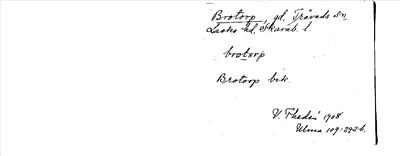 Brotorp, gd. Trävads sn,
Laske hd. Skarab. l.
brotorp
Brotorp bik.
V. Thedin 1908
Ulma 109:292 b.